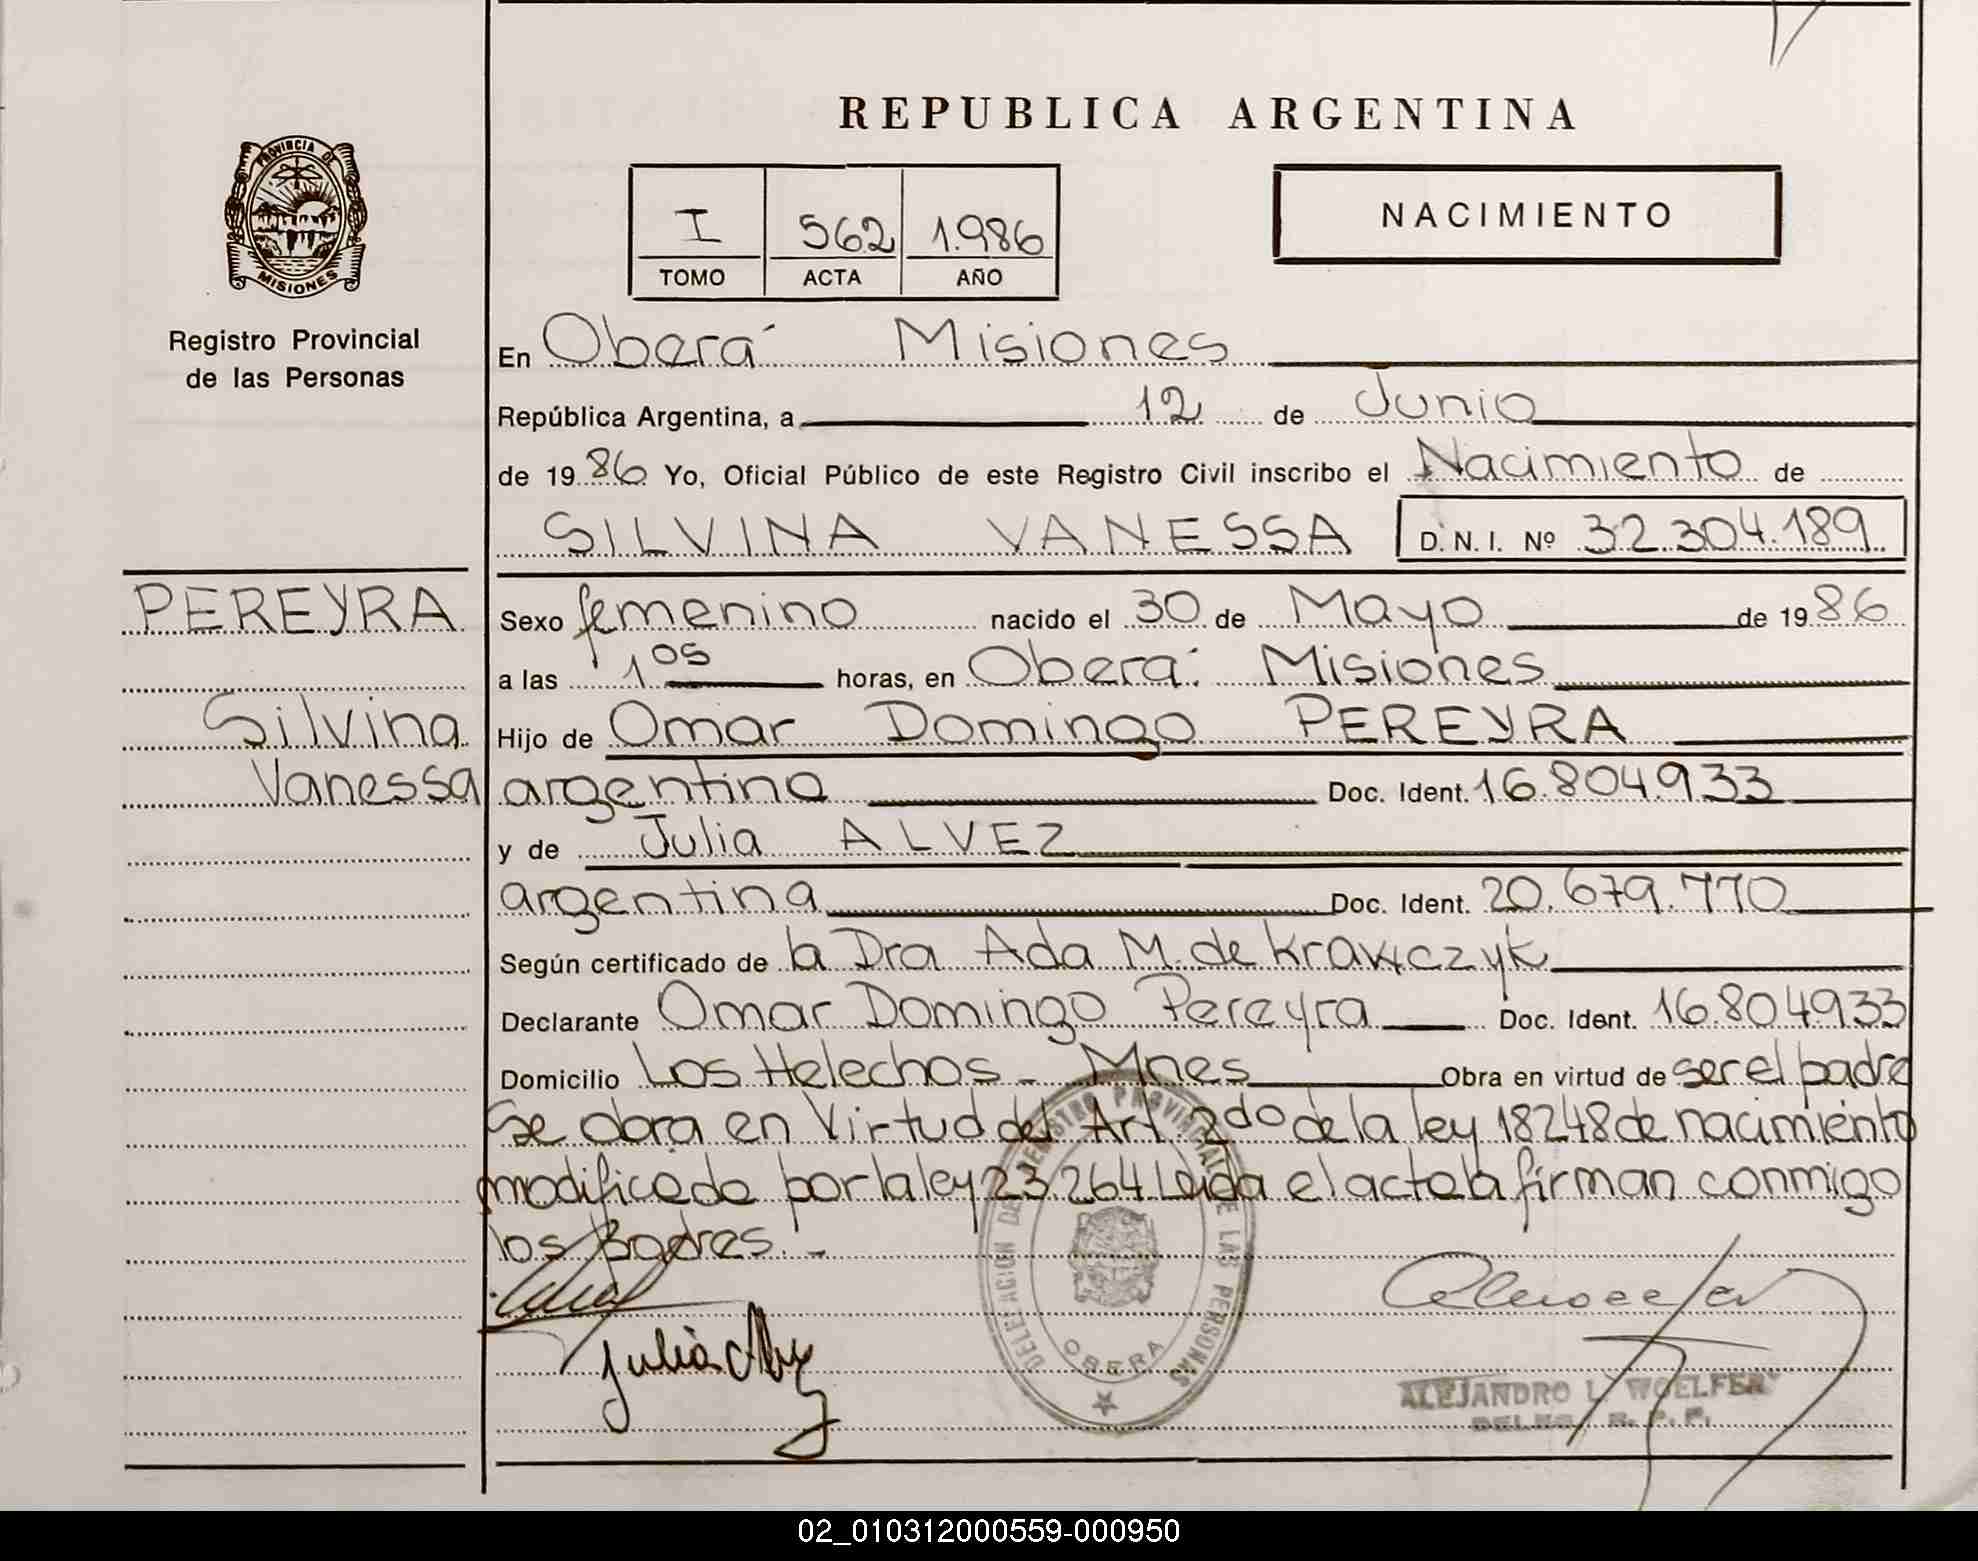 REPUBLICA ARGENTINA
PROVINCIA DE
MISIONES
Registro Provincial
de las Personas
I 562 1.986
TOMO ACTA AÑO
NACIMIENTO
En Oberá Misiones
República Argentina, a 12 de Junio
de 1986 Yo, Oficial Público de este Registro Civil inscribo el Nacimiento de
SILVINA VANESSA D.N.I. Nº 32.304.189
PEREYRA
Silvina
Vanessa
Sexo femenino nacido el 30 de Mayo de 1986
a las 1 05 horas, en Oberá Misiones
Hijo de Omar Domingo PEREYRA
argentino Doc. Ident. 16.804.933
y de Julia ALVEZ
argentina Doc. Ident. 20.679.770
Según certificado de la Dra Ada M. de Krawczyk
Declarante Omar Domingo Pereyra Doc. Ident. 16.804.933
Domicilio Los Helechos - Mnes Obra en virtud de ser el padre
Se obra en Virtud del Art. 2do de la ley 18248 de nacimiento
modificada por la ley 23.264 Leida el acta la firman conmigo
los Padres. -
Julia
DELEGACION DE REGISTRO PROVINCIAL DE LAS PERSONAS
OBERA
ALEJANDRO L. WOELFER
DELEG. R. P. P.
02_010312000559-000950